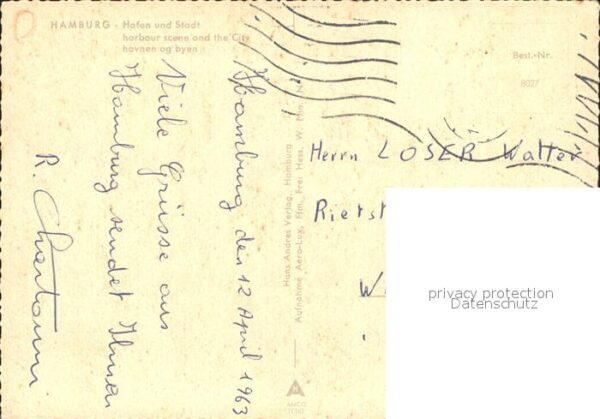 HAMBURG - Hafen und Stadt
harbour scene and the City
havnen og byen
Best.-Nr.
8027
Hamburg den 12 April 1963
Viele Grüsse aus
Hamburg sendet Ihnen
R.
Hans Andres Verlag, Hamburg
Aufnahme Aero-Lux, Ffm, Frei Hess. W. Min. Nr.
Herrn LOSER Walter
Rietst
W
privacy protection
Datenschutz